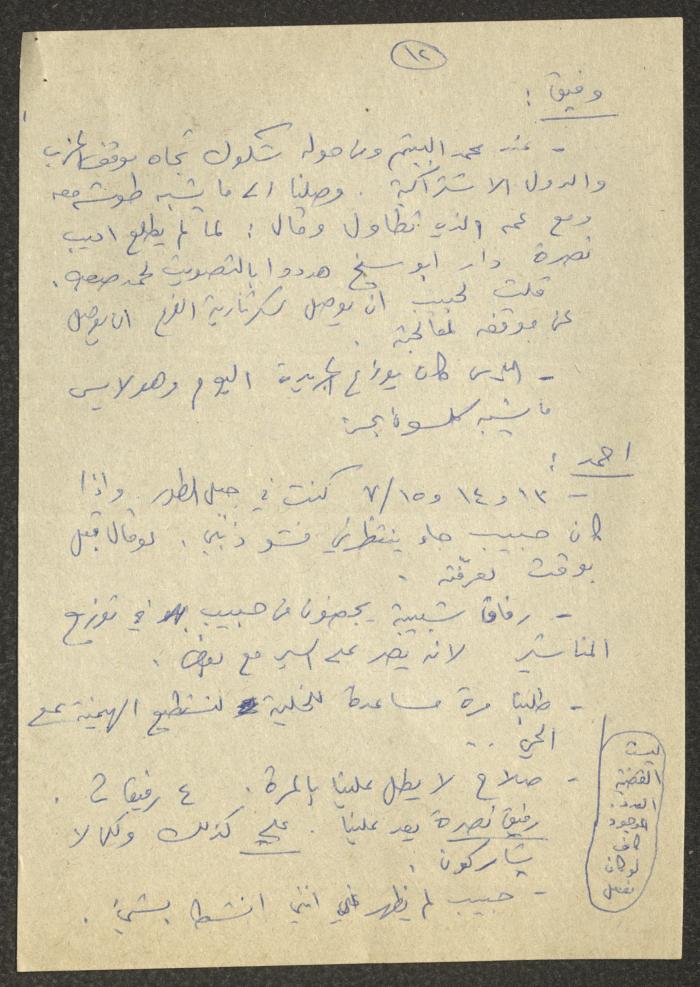 ١٢
وفيق :
- عند محمد اليتيم ومن حوله شكوك تجاه موقف الحزب
والدول الاشتراكية . وصلنا الى ما يشبه طوشة معه
ومع عمه الذي تطاول وقال : لما لم يطلع اديب
نصرة دار ابو سيخ هددوا بالتصويت لمحمد
قلت لحبيب ان يوصل سكرتارية الفرع ان يوصل
عن موقفه لمعالجة .
- كان يوزع الجريدة اليوم وهو لابس
ما يشبه
احمد :
- ١٣ و ١٤ و ١٥/٧ كنت في جبل الطور . واذا
كان حبيب جاء ينتظرني فشو ذنبي . لو قال قبل
بوقت لعرفته .
- رفاق شبيبة من حبيب في توزيع
المناشير لانه يصر على السير مع
- طلبنا مرة مساعدة للخلية لنستطيع الهيمنة مع
الحي ..
- صلاح لا يطل علينا بالمرة . ٤ رفيقات .
رفيق نصرة علينا . علي كذلك وكمال لا
يشاركون .
- حبيب لم يظهر لي انني انشط بشيء .
ليست
القضية
العدد
موجود
لو كان